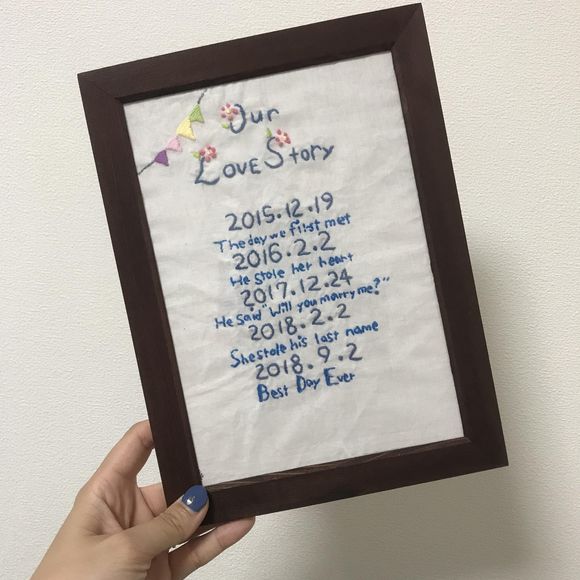 Our
Love Story
2015.12.19
The day we first met
2016.2.2
He stole her heart
2017.12.24
He said "Will you marry me?"
2018.2.2
She stole his last name
2018.9.2
Best Day Ever